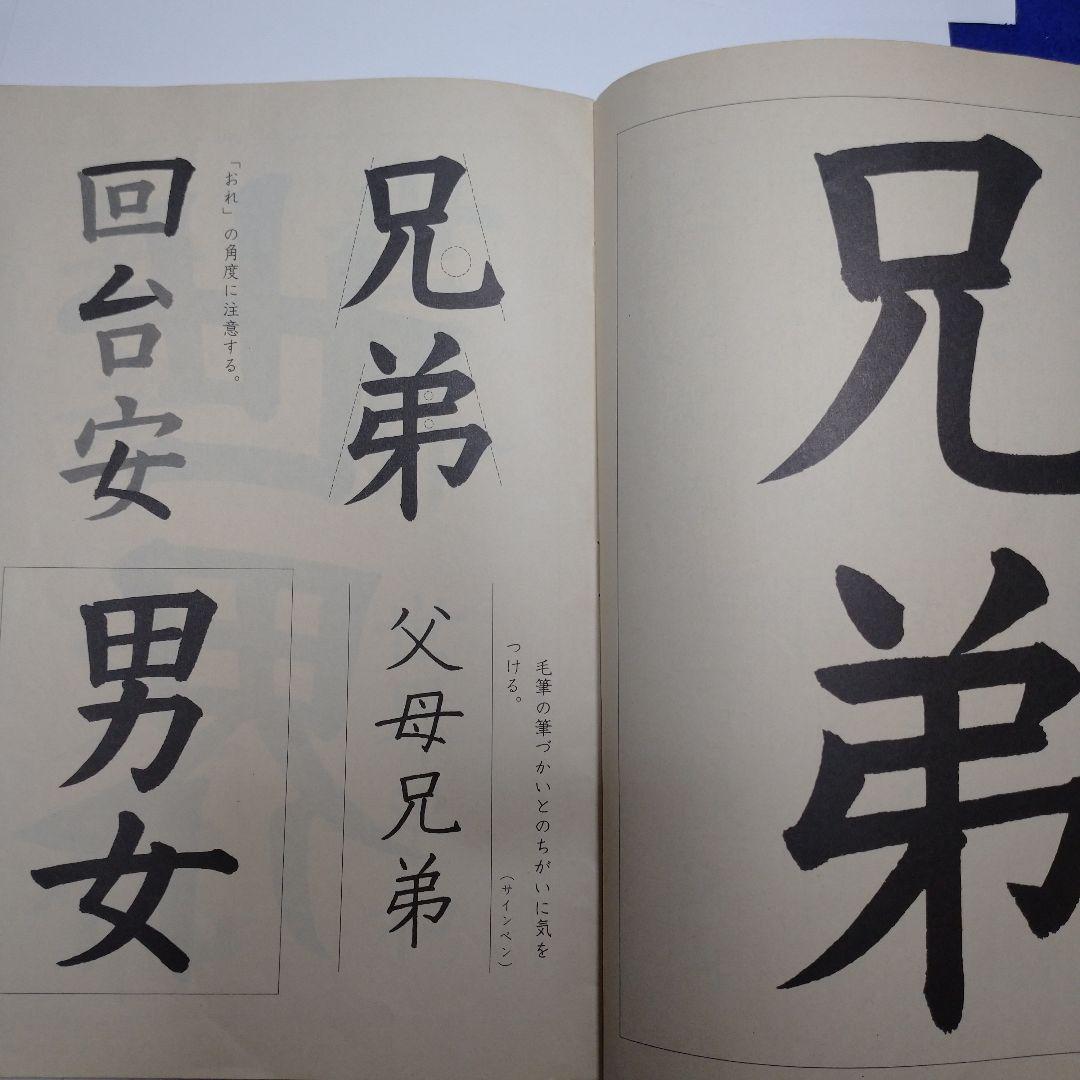 兄弟
兄弟
毛筆の筆づかいとのちがいに気を
つける。
（サインペン）
父母兄弟
「おれ」の角度に注意する。
回台安
男女